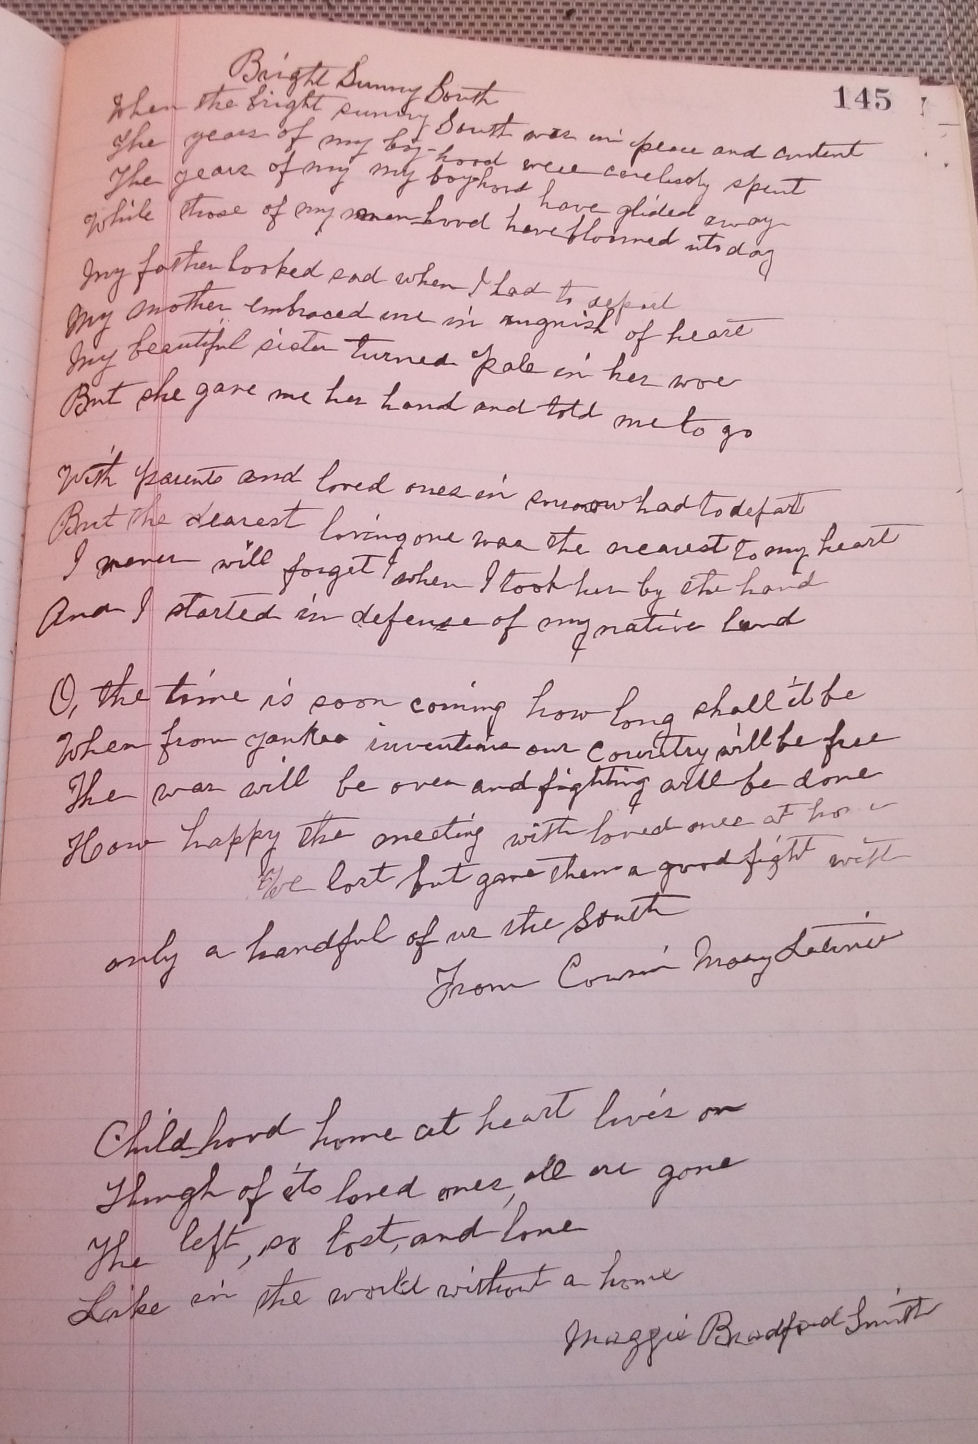 145
Bright Sunny South
When the bright sunny South was in peace and content
The years of my boy-hood were carelessly spent
The years of my my boyhood have glided away
While those of my man-hood have bloomed into day
My father looked sad when I had to depart
My mother embraced me in anguish of heart
My beautiful sister turned pale in her woe
But she gave me her hand and told me to go
With parents and loved ones in sorrow had to depart
But the dearest loving one was the nearest to my heart
I never will forget when I took her by the hand
And I started in defense of my native land
O, the time is soon coming how long shall it be
When from yankee inventions our Country will be free
The war will be over and fighting will be done
How happy the meeting with loved ones at home
We lost but gave them a good fight with
only a handful of us the South
From Cousin Mary
Childhood home at heart lives on
Though of its loved ones, all are gone
The left, so lost, and lone
Like in the world without a home
Maggie Bradford Smith